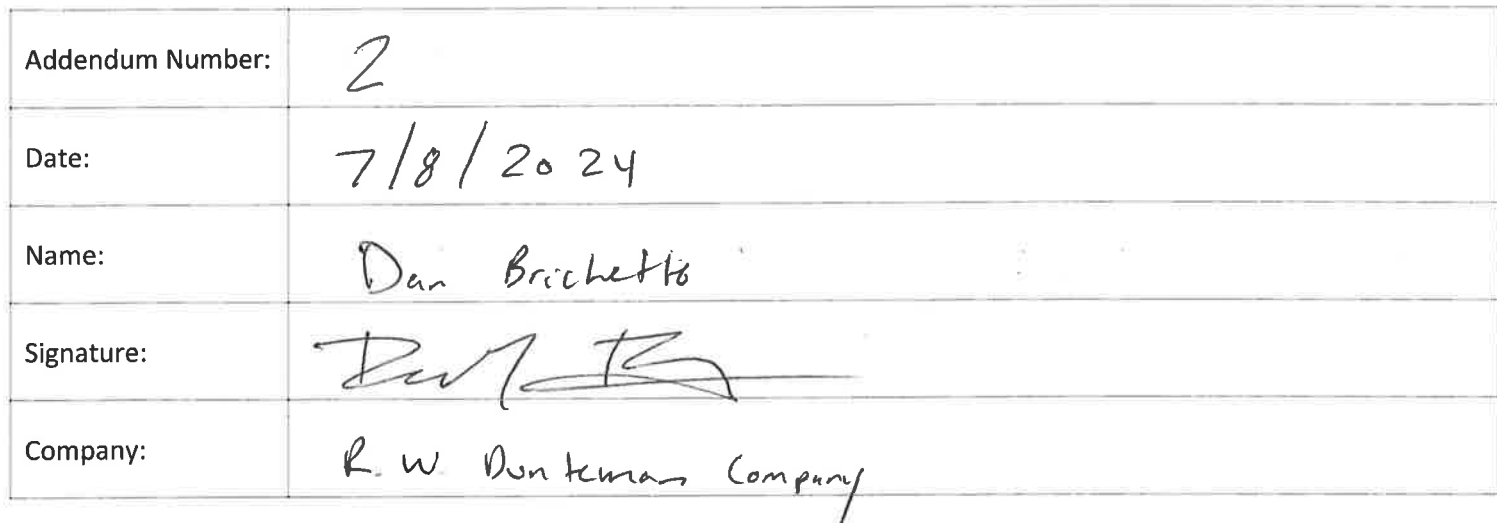 Addendum Number: 2
Date: 7/8/2024
Name: Dan Brichetto
Signature:
Company: R. W. Dunteman Company